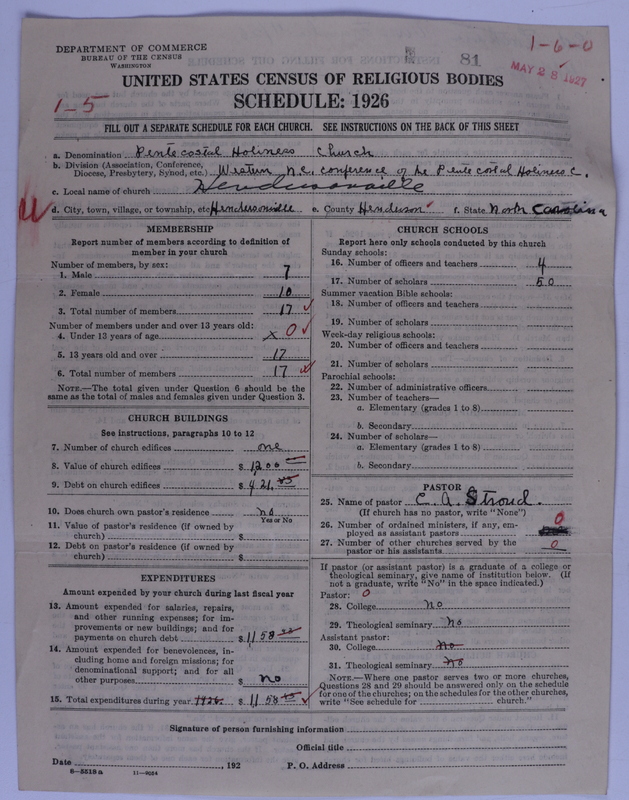 DEPARTMENT OF COMMERCE
BUREAU OF THE CENSUS
WASHINGTON
81
1-6-0
MAY 28 1927
UNITED STATES CENSUS OF RELIGIOUS BODIES
1-5
SCHEDULE: 1926
FILL OUT A SEPARATE SCHEDULE FOR EACH CHURCH. SEE INSTRUCTIONS ON THE BACK OF THIS SHEET
a. Denomination Pentecostal Holiness Church
b. Division (Association, Conference, Diocese, Presbytery, Synod, etc.) Western N.C. conference of the Pentecostal Holiness C.
c. Local name of church Hendersonville
d. City, town, village, or township, etc. Hendersonville e. County Henderson f. State North Carolina
MEMBERSHIP
Report number of members according to definition of
member in your church
Number of members, by sex:
1. Male 7
2. Female 10
3. Total number of members 17
Number of members under and over 13 years old:
4. Under 13 years of age x 0
5. 13 years old and over 17
6. Total number of members 17
NOTE.—The total given under Question 6 should be the
same as the total of males and females given under Question 3.
CHURCH BUILDINGS
See instructions, paragraphs 10 to 12
7. Number of church edifices one
8. Value of church edifices $ 1200
9. Debt on church edifices $ 421.45
10. Does church own pastor's residence no
Yes or No
11. Value of pastor's residence (if owned by
church) $
12. Debt on pastor's residence (if owned by
church) $
EXPENDITURES
Amount expended by your church during last fiscal year
13. Amount expended for salaries, repairs,
and other running expenses; for im-
provements or new buildings; and for
payments on church debt $ 1158
14. Amount expended for benevolences, in-
cluding home and foreign missions; for
denominational support; and for all
other purposes $ no
15. Total expenditures during year 1926. $ 1158
CHURCH SCHOOLS
Report here only schools conducted by this church
Sunday schools:
16. Number of officers and teachers 4
17. Number of scholars 50
Summer vacation Bible schools:
18. Number of officers and teachers
19. Number of scholars
Week-day religious schools:
20. Number of officers and teachers
21. Number of scholars
Parochial schools:
22. Number of administrative officers
23. Number of teachers—
a. Elementary (grades 1 to 8)
b. Secondary
24. Number of scholars—
a. Elementary (grades 1 to 8)
b. Secondary
PASTOR
25. Name of pastor C. A. Stroud.
(If church has no pastor, write "None")
26. Number of ordained ministers, if any, em-
ployed as assistant pastors 0
27. Number of other churches served by the
pastor or his assistants 0
If pastor (or assistant pastor) is a graduate of a college or
theological seminary, give name of institution below. (If
not a graduate, write "No" in the space indicated.)
Pastor: 0
28. College No
29. Theological seminary No
Assistant pastor:
30. College No
31. Theological seminary No
NOTE.—Where one pastor serves two or more churches,
Questions 28 and 29 should be answered only on the schedule
for one of the churches; on the schedules for the other churches,
write "See schedule for church."
Signature of person furnishing information
Official title
Date , 192 P. O. Address
8-5518a 11-9054